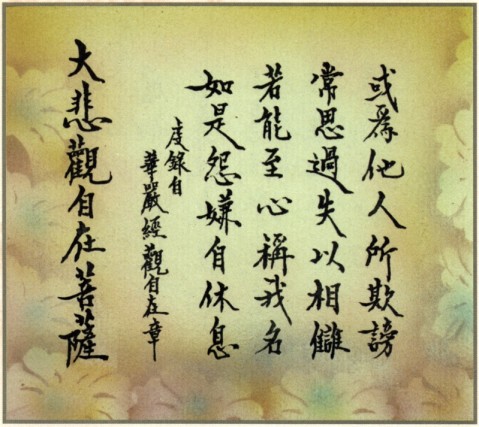 或爲他人所欺謗
常思過失以相讎
若能至心稱我名
如是怨嫌自休息
錄自
華嚴經觀自在章
大悲觀自在菩薩